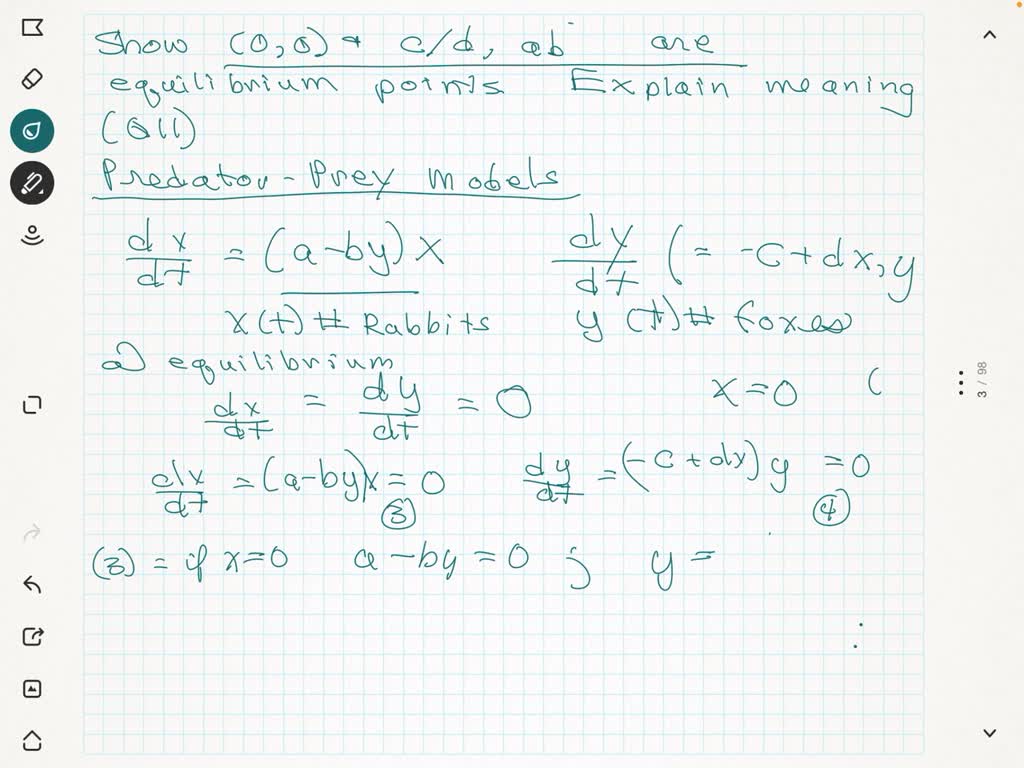 Show (0,0) + c/d, ab are
equilibrium points Explain meaning
(all)
Predator-Prey Models
dx/dt = (a-by)x dy/dt (= -c+dx,y
x(t) # Rabbits y(t) # foxes
a) equilibrium
dx/dt = dy/dt = 0 x=0 (
dx/dt = (a-by)x = 0 (3) dy/dt = (-c+dx)y = 0 (4)
(3) = if x=0 a-by=0 ; y =
3 / 98